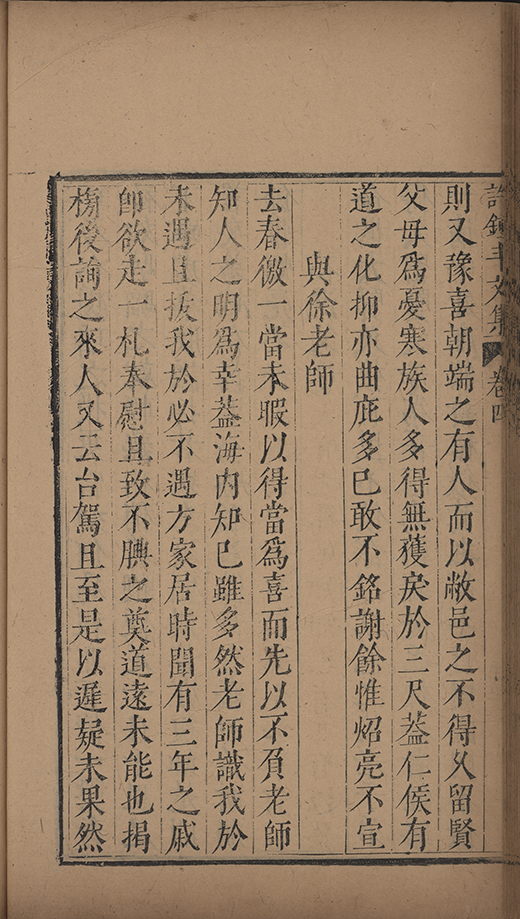 許鍾斗文集 卷四
則又豫喜朝端之有人而以敝邑之不得久留賢
父母爲憂寒族人多得無獲戾於三尺葢仁侯有
道之化抑亦曲庇多已敢不銘謝餘惟炤亮不宣
與徐老師
去春徼一當未暇以得當爲喜而先以不負老師
知人之明爲幸葢海内知已雖多然老師識我於
未遇且拔我於必不遇方家居時聞有三年之戚
卽欲走一札奉慰且致不腆之奠道遠未能也揭
榜後詢之來人又云台駕且至是以遲疑未果然